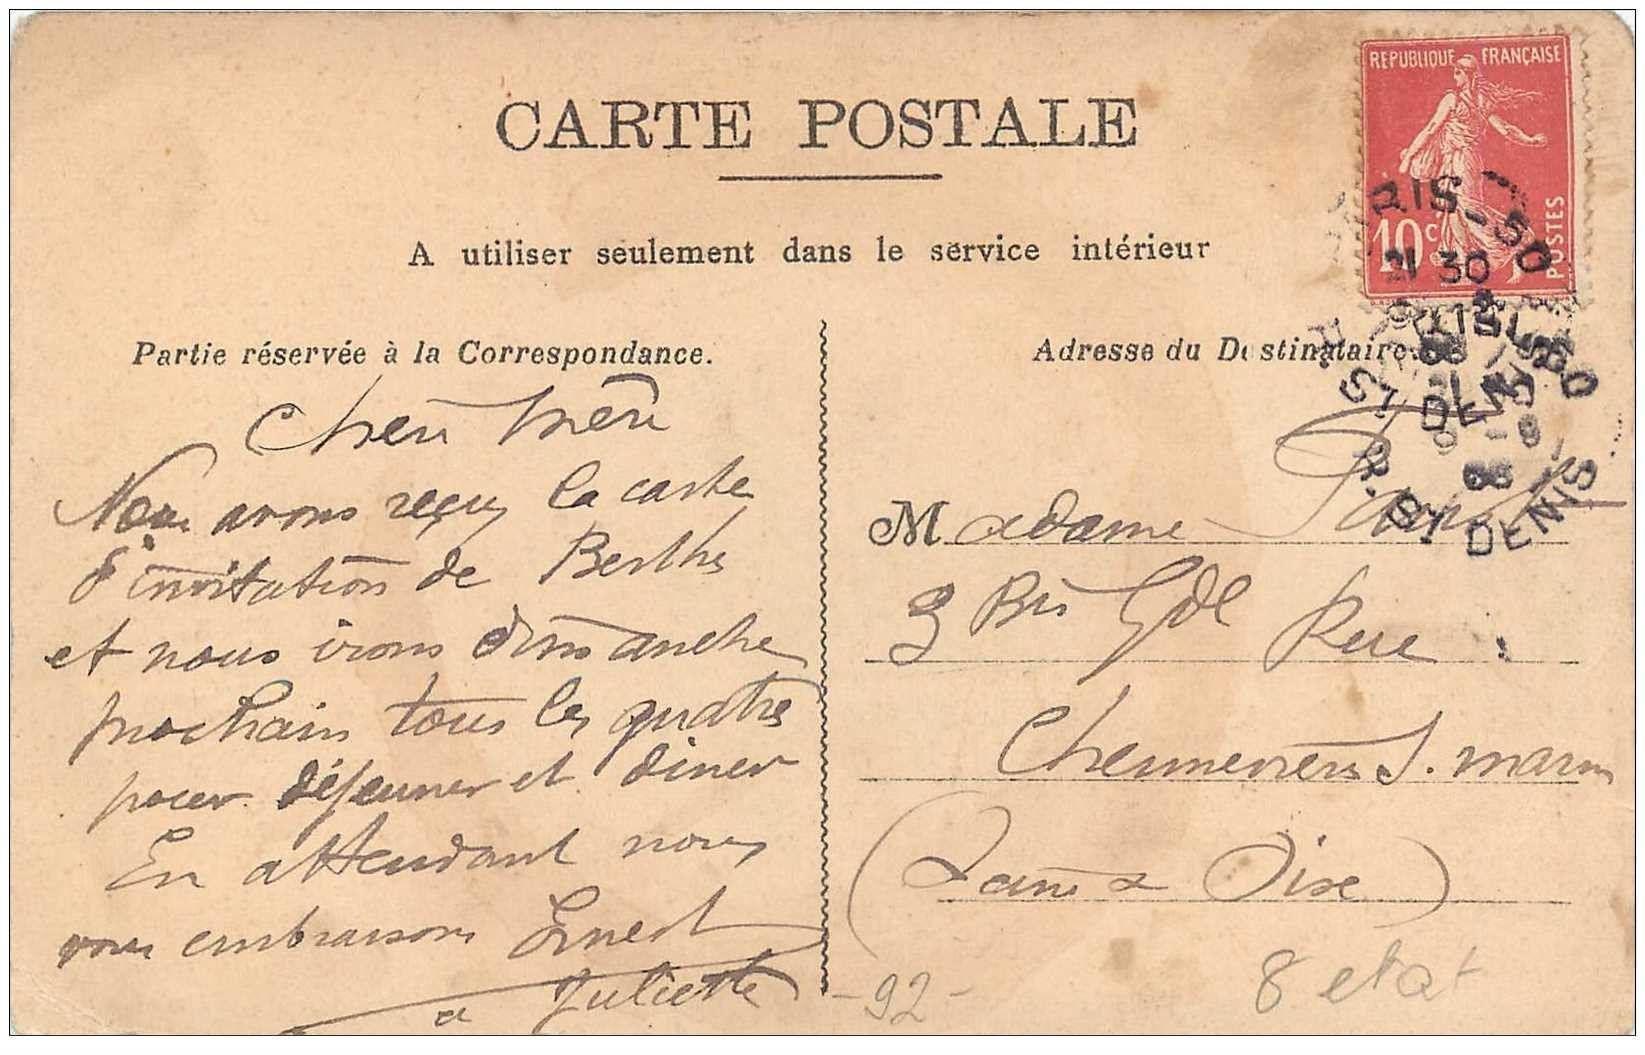 CARTE POSTALE
A utiliser seulement dans le service intérieur
REPUBLIQUE FRANÇAISE
10c
POSTES
PARIS-50
21 30
R. ST DENIS
PARIS-50
R. ST DENIS
Partie réservée à la Correspondance.
Chère mère
Nous avons reçu la carte
d'invitation de Berthe
et nous irons dimanche
prochain tous les quatre
pour déjeuner et diner
En attendant nous
vous embrassons Ernest
& Juliette
Adresse du Destinataire
Madame
3 Bis Gde Rue
Chennevières S. marne
(Seine & Oise)
-92-
8 etat